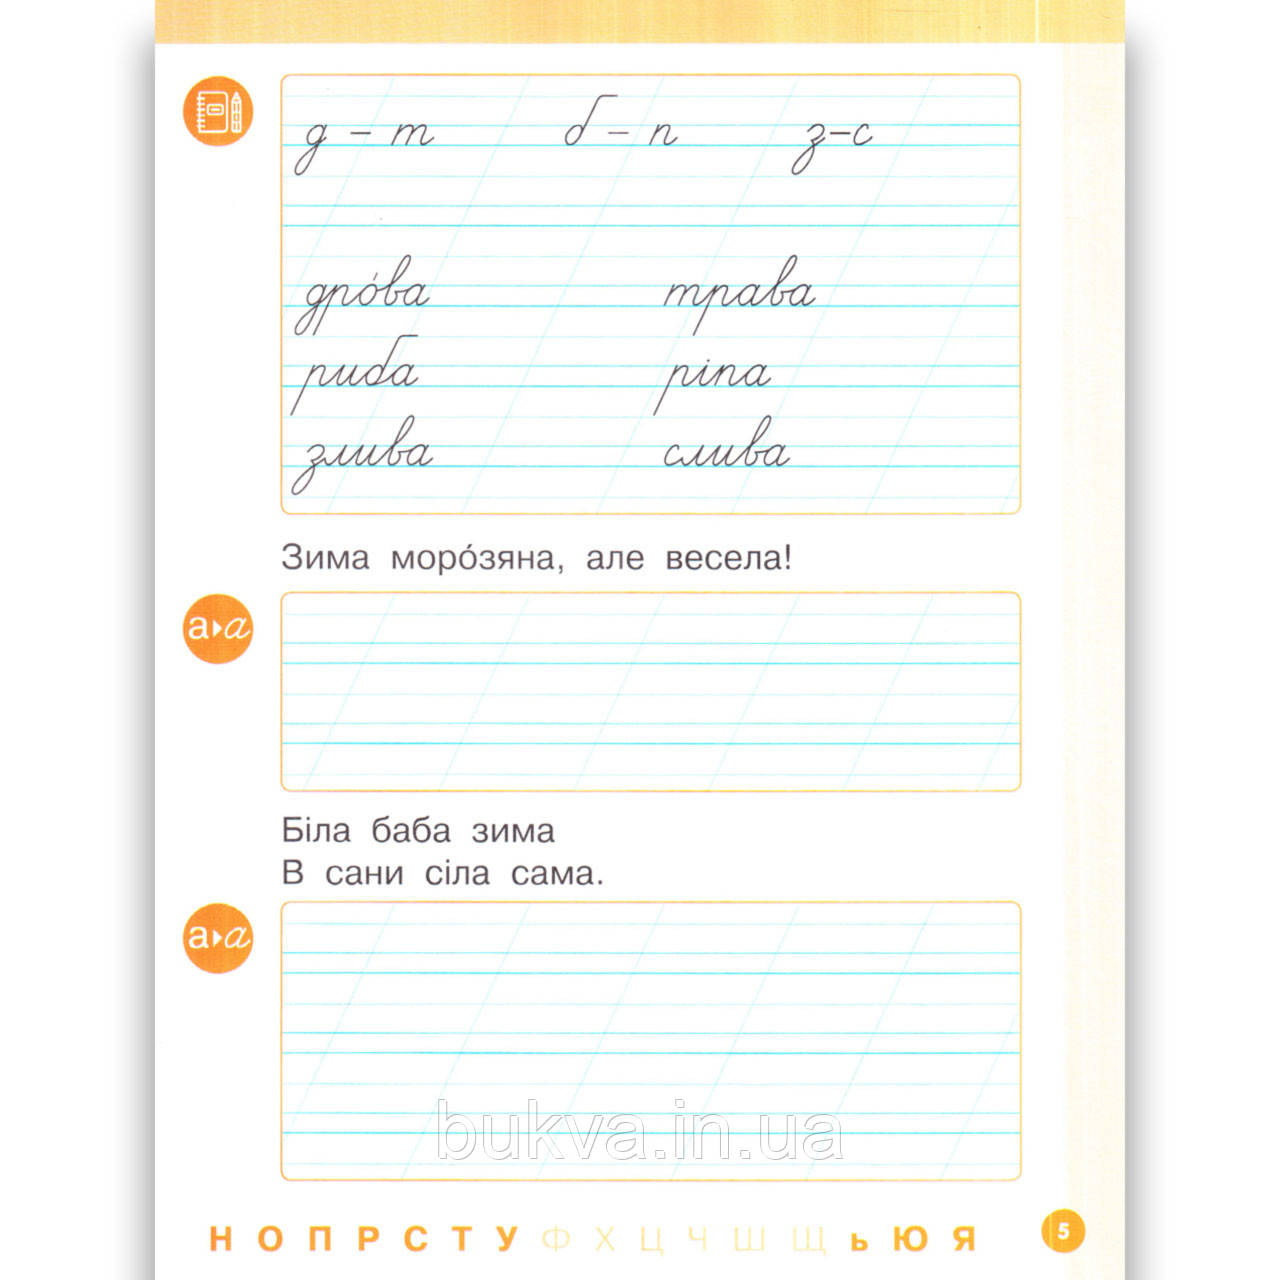 д – т б – п з–с
дро́ва трава
риба ріпа
злива слива
Зима моро́зяна, але весела!
а а
Біла баба зима
В сани сіла сама.
а а
bukva.in.ua
Н О П Р С Т У Ф Х Ц Ч Ш Щ ь Ю Я 5